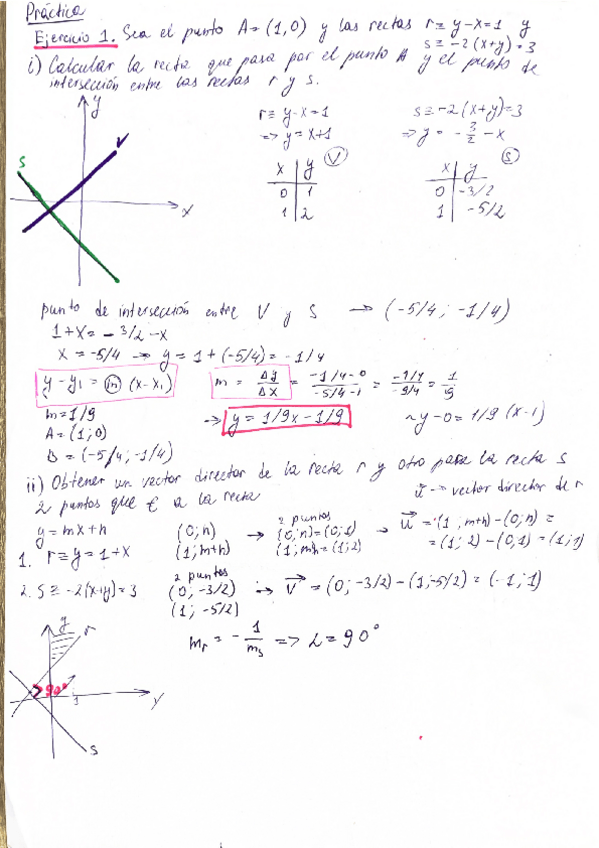 Práctica
Ejercicio 1. Sea el punto A=(1,0) y las rectas r≡ y-x=1 y
s≡ -2(x+y)=3
i) Calcular la recta que pasa por el punto A y el punto de
intersección entre las rectas r y s.
y
r≡ y-x=1
=> y=x+1
s≡ -2(x+y)=3
=> y= -3/2 -x
x | y (V)
0 | 1
1 | 2
x | y (S)
0 | -3/2
1 | -5/2
S
V
x
punto de intersección entre V y S → (-5/4; -1/4)
1+x = -3/2 -x
x = -5/4 → y = 1+(-5/4) = -1/4
y-y1 = m (x-x1)
m = Δy/Δx = -1/4-0/-5/4-1 = -1/4/-9/4 = 1/9
m=1/9
→ y = 1/9x - 1/9
~ y-0 = 1/9 (x-1)
A=(1;0)
B = (-5/4; -1/4)
ii) Obtener un vector director de la recta r y otro para la recta s
2 puntos que € a la recta
u → vector director de r
y = mx+n
(0;n)
(1;m+n)
1. r≡y = 1+x
→ 2 puntos
(0;n)=(0;1)
(1;m+n)=(1;2)
→ u = (1;m+n)-(0;n) =
=(1;2)-(0,1)=(1;1)
2. s≡ -2(x+y)=3
2 puntos
(0; -3/2)
(1; -5/2)
→ v = (0; -3/2)-(1;-5/2) = (-1;1)
mr = - 1/ms => ∠=90°
y
r
90°
1
s